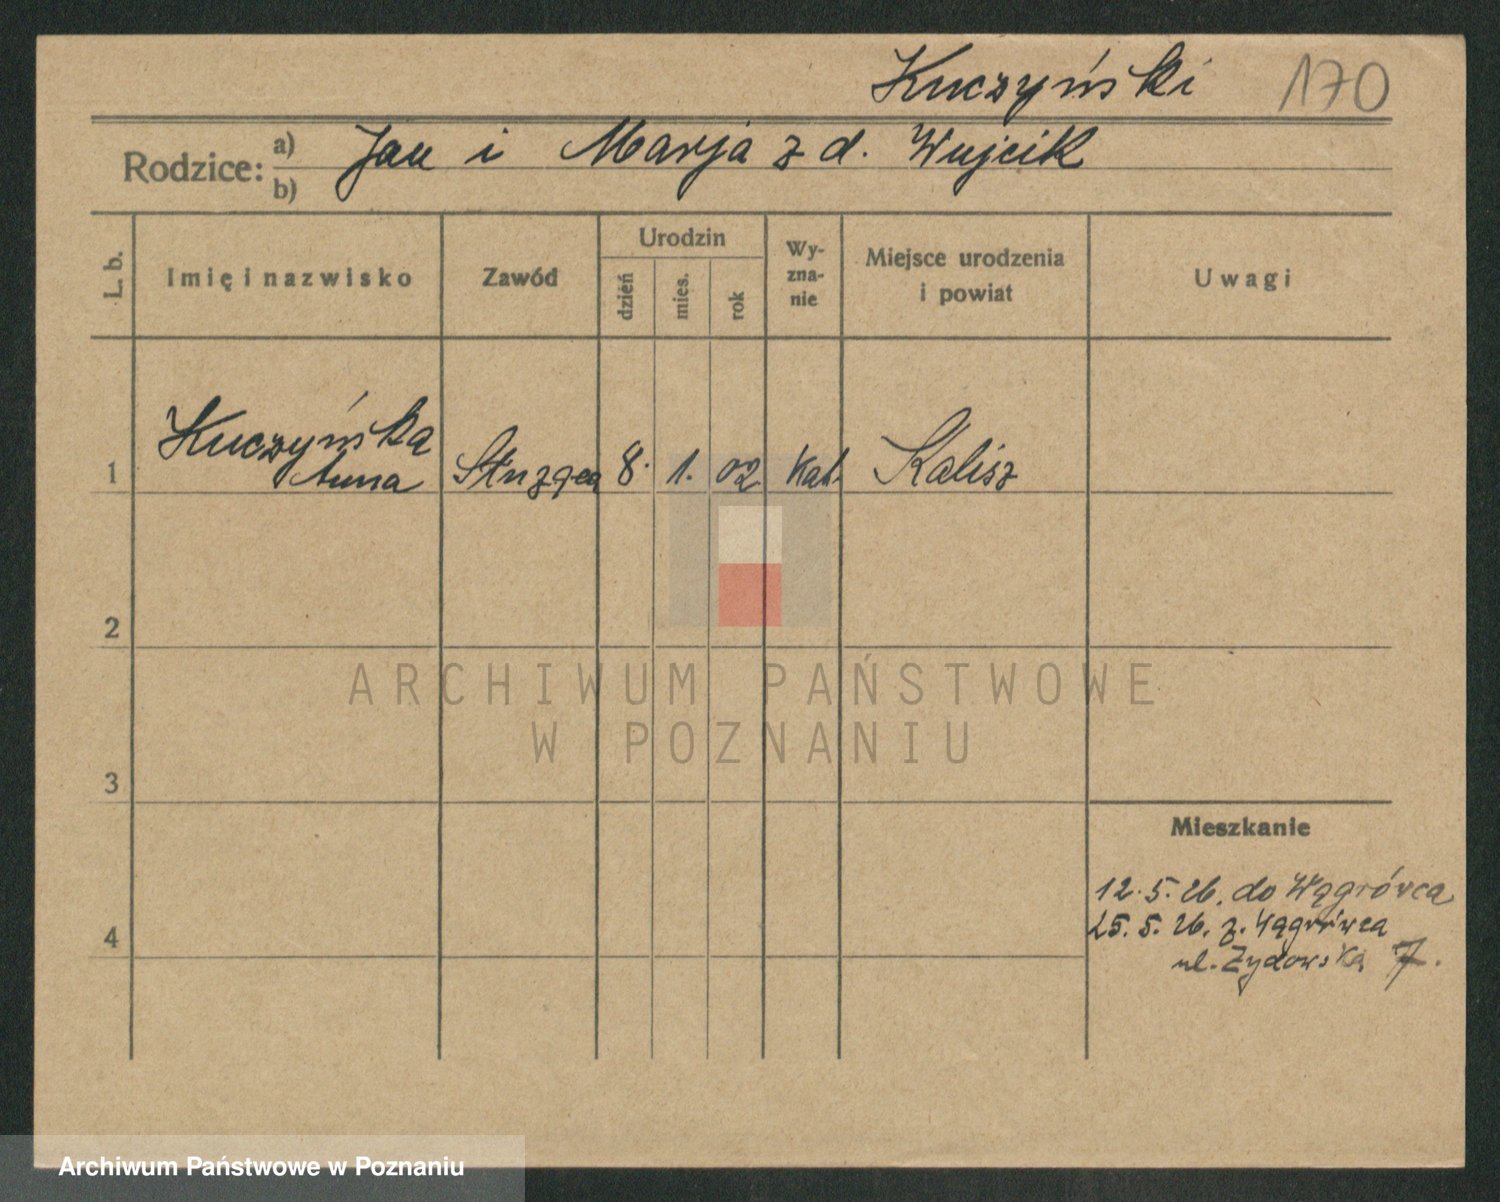 Kuczyński 170
Rodzice: a) Jan i Marja z d. Wujcik
b)
L. b.
Imię i nazwisko
Zawód
Urodzin
dzień
mies.
rok
Wy-
zna-
nie
Miejsce urodzenia
i powiat
Uwagi
1 Kuczyńska
Anna Służąca 8. 1. 02 Kat. Kalisz
2
3
4
Mieszkanie
12. 5. 26. do Wągrówca
25. 5. 26. z. Wągrówca
ul. Żydowska 7.
ARCHIWUM PAŃSTWOWE
W POZNANIU
Archiwum Państwowe w Poznaniu